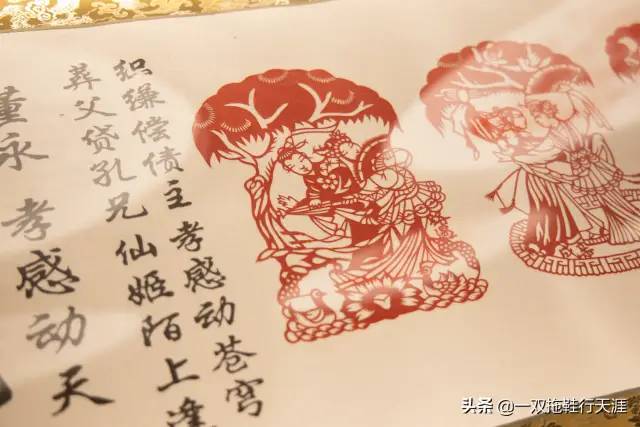 董永 孝感动天
葬父贷孔兄仙姬陌上逢
织缣偿债主孝感动苍穹
头条 @一双拖鞋行天涯